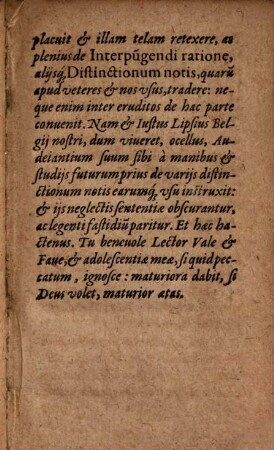 placuit & illam telam retexere, ac
plenius de Interpũgendi ratione,
alijsq́₃ Distinctionum notis, quarũ
apud veteres & nos vsus, tradere: ne-
que enim inter eruditos de hac parte
conuenit. Nam & Iustus Lipsius Bel-
gij nostri, dum viueret, ocellus, Au-
deiantium suum sibi à manibus &
studijs futurum prius de varijs distin-
ctionum notis earumq́₃ vsu instruxit:
& ijs neglectis sententiæ obscurantur,
ac legenti fastidiũ paritur. Et hæc ha-
ctenus. Tu beneuole Lector Vale &
Faue; & adolescentiæ meæ, si quid pec-
catum, ignosce: maturiora dabit, si
Deus volet, maturior ætas.